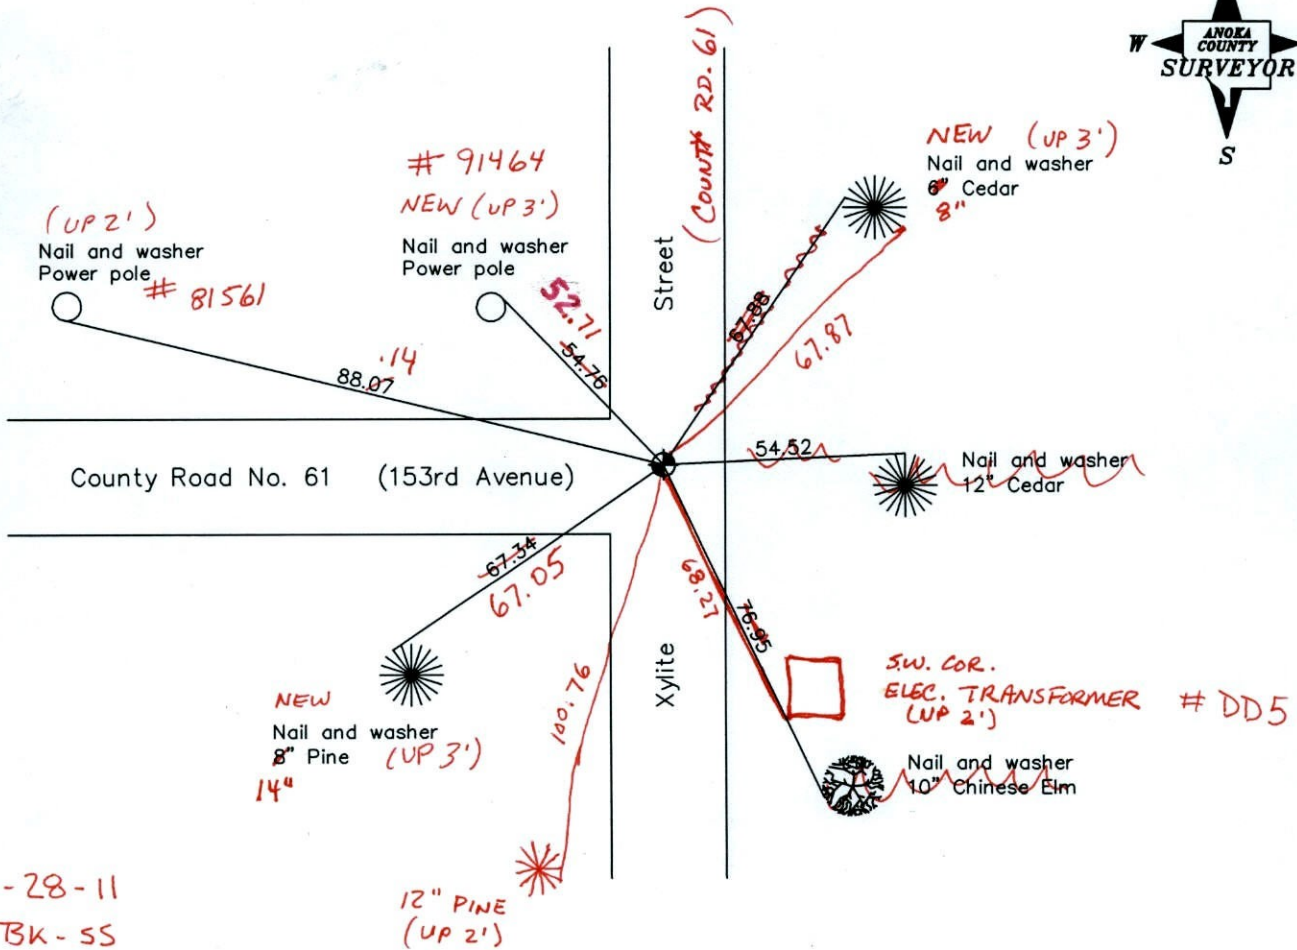 W
ANOKA
COUNTY
SURVEYOR
S
(COUNTY RD. 61)
Street
NEW (UP 3')
Nail and washer
6" Cedar
8"
# 91464
NEW (UP 3')
Nail and washer
Power pole
(UP 2')
Nail and washer
Power pole
# 81561
52.71
54.76
.14
88.07
67.88
67.87
54.52
Nail and washer
12" Cedar
County Road No. 61 (153rd Avenue)
67.34
67.05
68.27
76.95
100.76
Xylite
S.W. COR.
ELEC. TRANSFORMER # DD5
(UP 2')
NEW
Nail and washer
8" Pine (UP 3')
14"
Nail and washer
10" Chinese Elm
-28-11
BK-SS
12" PINE
(UP 2')